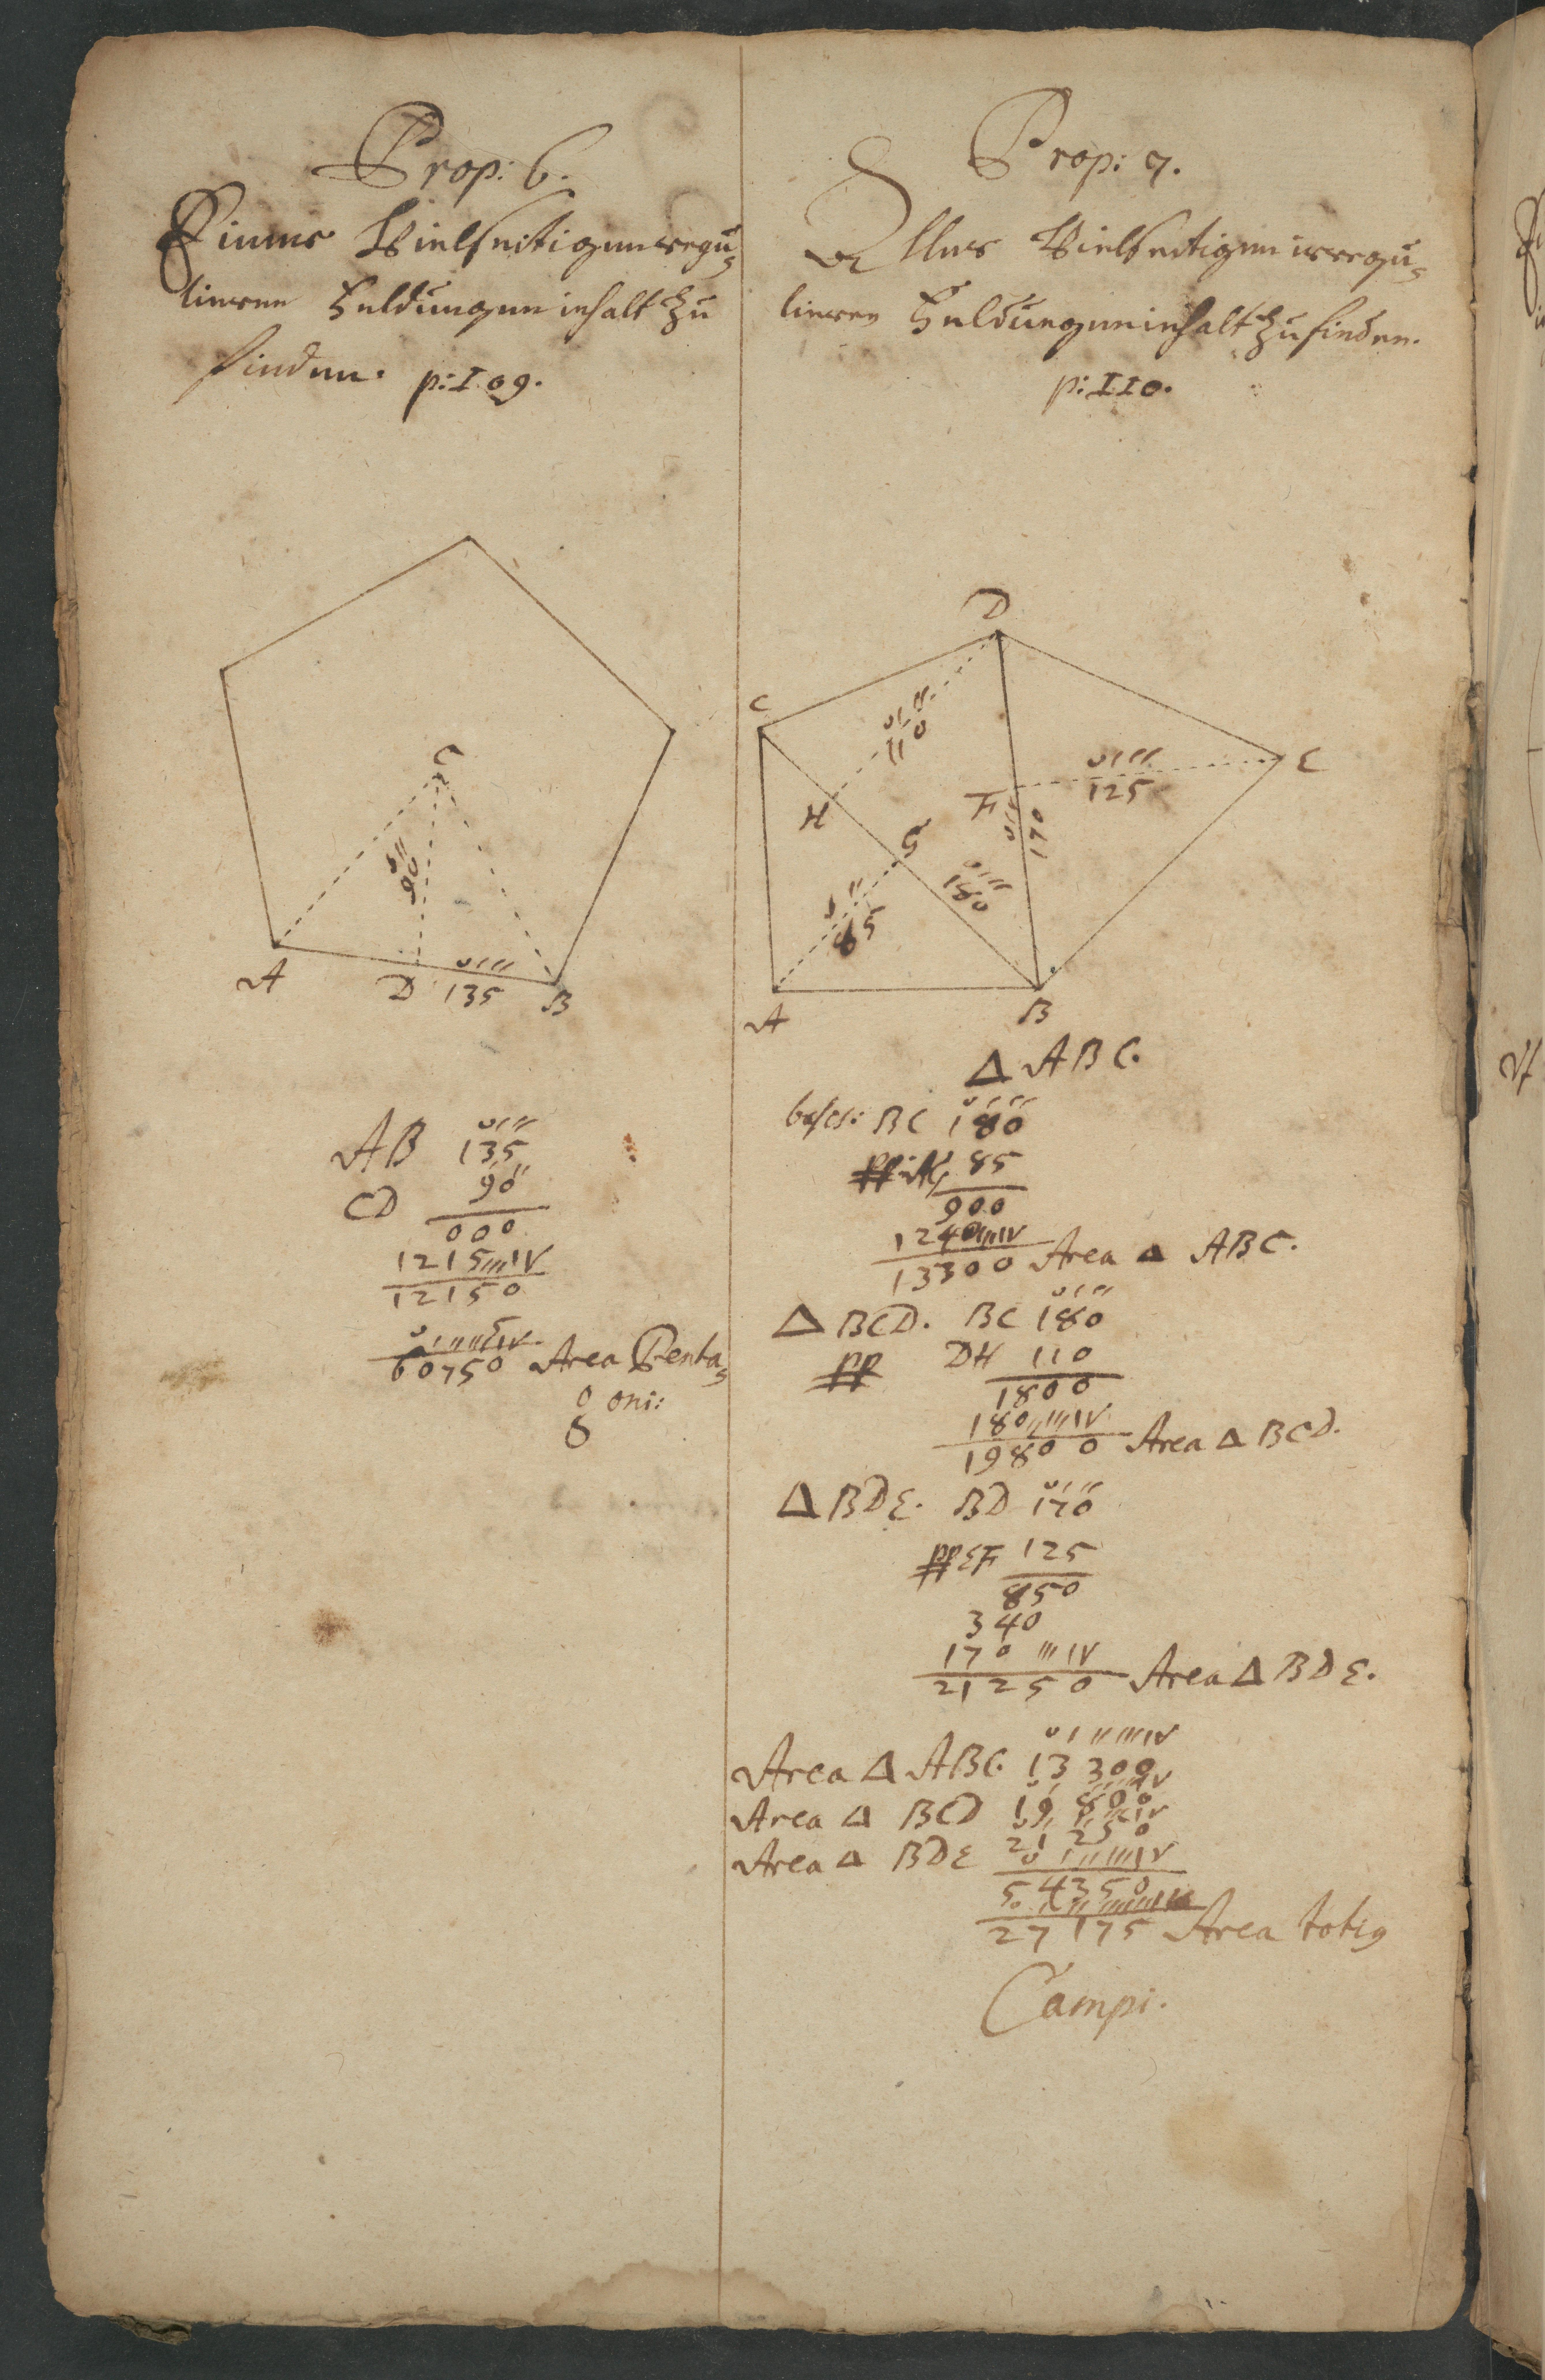 Prop: 6.
Eines Vielseitigen regu¬
lieren Feldung en inhalt zu
finden. p: 109.
C
90
A
D
135
B
AB 135
CD 90
000
1215
12150
60750 Area Penta¬
goni:
Prop: 7.
Alles Vielseitigen irregu¬
lieren Feldung en inhalt zu finden.
p: 110.
D
C
110
E
125
H
F
170
G
180
85
A
B
Δ ABC.
basis: BC 180
pp: AG 85
900
1240
13300 Area Δ ABC.
Δ BCD. BC 180
pp DH 110
1800
180
19800 Area Δ BCD.
Δ BDE. BD 170
pp EF 125
850
340
170
21250 Area Δ BDE.
Area Δ ABC. 13300
Area Δ BCD 19800
Area Δ BDE 21250
54350
27175 Area totius
Campi.